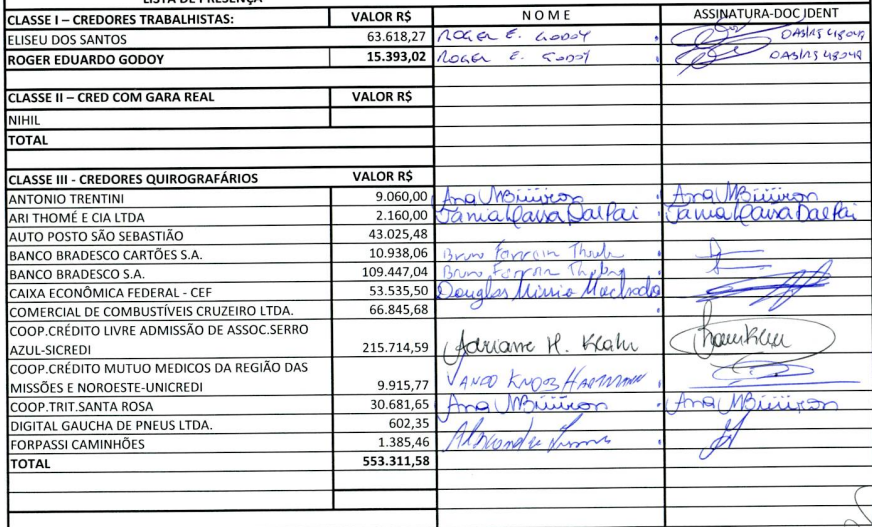 LISTA DE PRESENÇA
CLASSE I – CREDORES TRABALHISTAS: VALOR R$ N O M E ASSINATURA-DOC IDENT
ELISEU DOS SANTOS 63.618,27 ROGER E. GODOY OAB/RS 48049
ROGER EDUARDO GODOY 15.393,02 ROGER E. GODOY OAB/RS 48049
CLASSE II – CRED COM GARA REAL VALOR R$
NIHIL
TOTAL
CLASSE III - CREDORES QUIROGRAFÁRIOS VALOR R$
ANTONIO TRENTINI 9.060,00 Ana Ana
ARI THOMÉ E CIA LTDA 2.160,00 Tania Dal Pai Tania Dal Pai
AUTO POSTO SÃO SEBASTIÃO 43.025,48
BANCO BRADESCO CARTÕES S.A. 10.938,06 Bruno
BANCO BRADESCO S.A. 109.447,04 Bruno
CAIXA ECONÔMICA FEDERAL - CEF 53.535,50 Douglas Machado
COMERCIAL DE COMBUSTÍVEIS CRUZEIRO LTDA. 66.845,68
COOP.CRÉDITO LIVRE ADMISSÃO DE ASSOC.SERRO
AZUL-SICREDI 215.714,59 Adriane H. Krahn
COOP.CRÉDITO MUTUO MEDICOS DA REGIÃO DAS
MISSÕES E NOROESTE-UNICREDI 9.915,77
COOP.TRIT.SANTA ROSA 30.681,65 Ana Ana
DIGITAL GAUCHA DE PNEUS LTDA. 602,35
FORPASSI CAMINHÕES 1.385,46
TOTAL 553.311,58